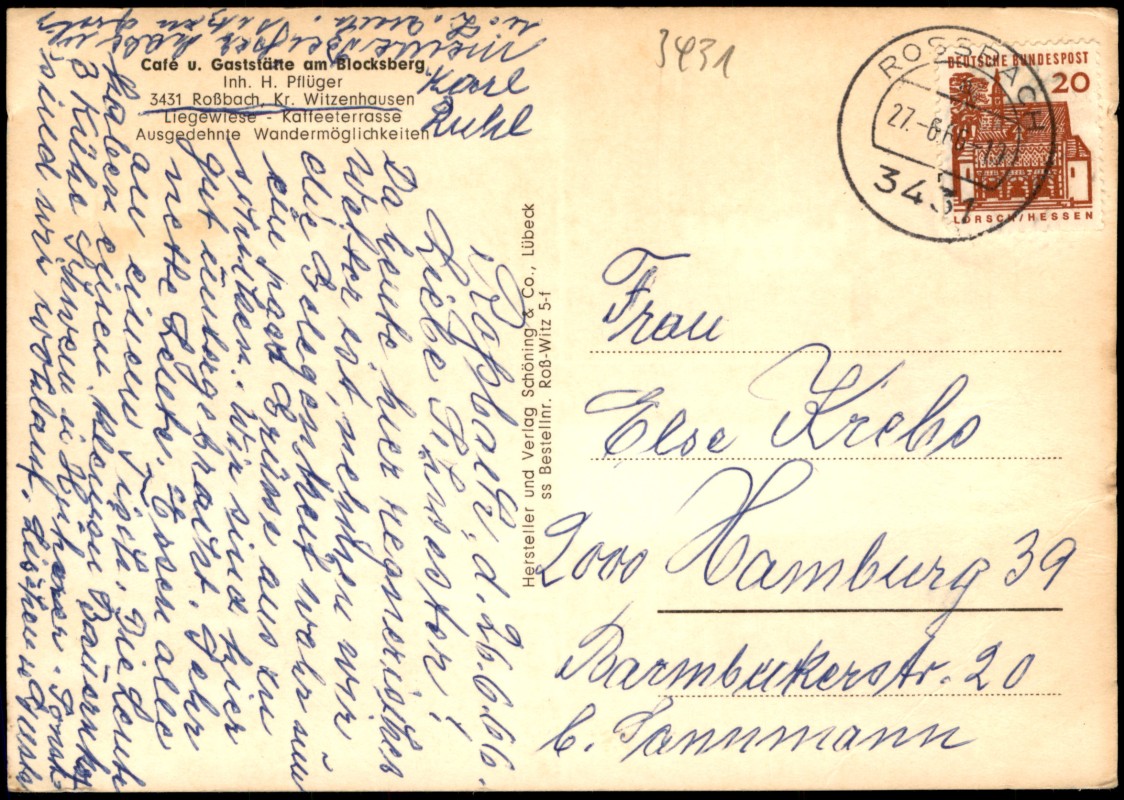 Café u. Gaststätte am Blocksberg
Inh. H. Pflüger
3431 Roßbach, Kr. Witzenhausen
Liegewiese - Kaffeeterrasse
Ausgedehnte Wandermöglichkeiten
3431
ROSSBACH
27.-6.66
3431
DEUTSCHE BUNDESPOST
20
LORSCH/HESSEN
Roßbach, d. 26.6.66.
Liebe Schwester!
Da heute hier regnerisches
Wetter ist nehmen wir
die Gelegenheit wahr um
ein paar Grüsse aus zu
strecken. Wir sind hier
gut untergebracht. Sehr
nette Leute. Essen alle
an einem Tisch. Die Leute
haben einen kleinen Bauernhof
3 Kühe Schwein u. Hühner. Sonst
sind wir wohlauf.
meine
Karl
Ruhl
Hersteller und Verlag Schöning & Co., Lübeck
ss Bestellnr. Roß-Witz 5-f
Frau
Else Krebs
2000 Hamburg 39
Barmbeckerstr. 20
b. Tannmann